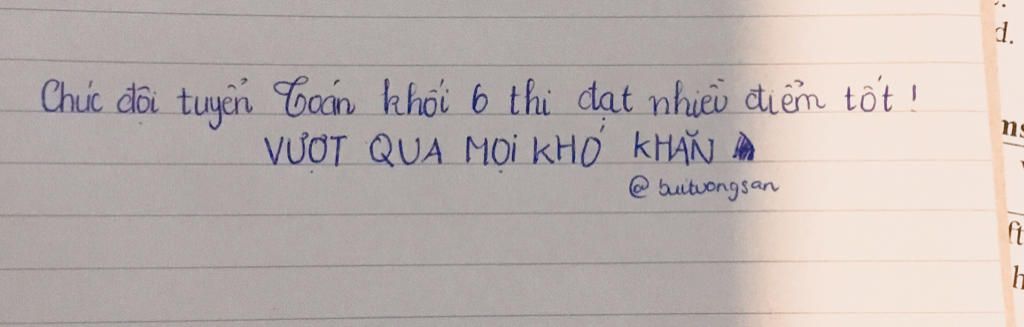 Chúc đội tuyển Toán khối 6 thi đạt nhiều điểm tốt!
VƯỢT QUA MỌI KHÓ KHĂN
@buituongsan
d.
ms
ft
h